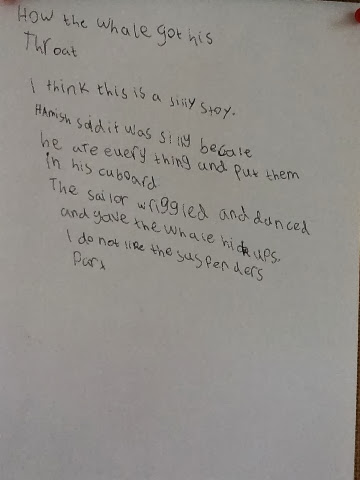 How the whale got his
Throat
I think this is a silly stoy.
HAmish said it was silly becale
he ate every thing and put them
in his cuboard
The sailor wriggled and danced
and gave the whale hickups.
I do not like the suspenders
Part